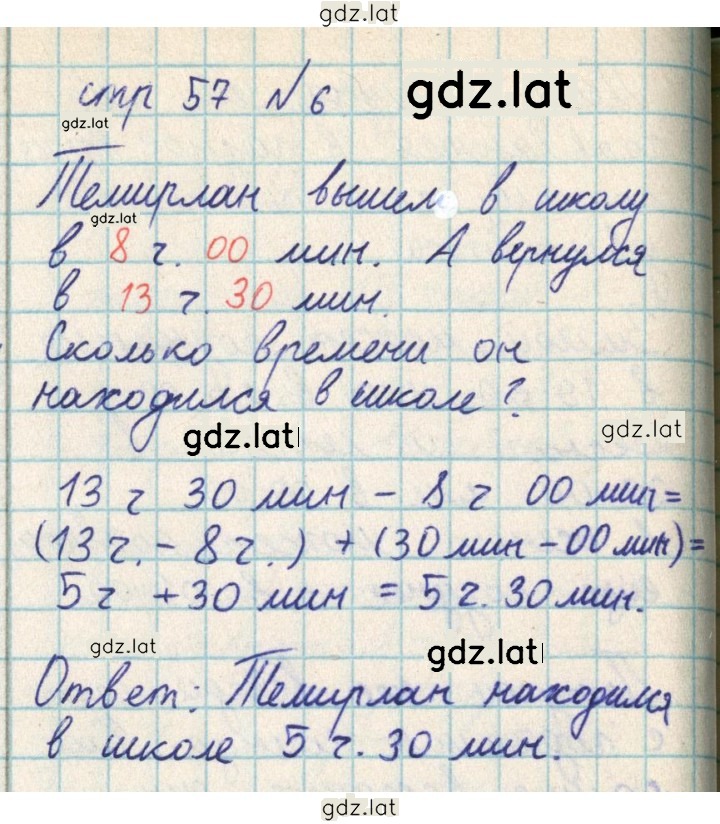 gdz.lat
стр 57 № 6
gdz.lat
gdz.lat
Темирлан вышел в школу
gdz.lat
в 8 ч. 00 мин. А вернулся
в 13 ч. 30 мин.
Сколько времени он
находился в школе?
gdz.lat
gdz.lat
13 ч 30 мин - 8 ч 00 мин =
(13 ч. - 8 ч.) + (30 мин - 00 мин) =
5 ч + 30 мин = 5 ч. 30 мин.
gdz.lat
gdz.lat
Ответ: Темирлан находился
в школе 5 ч. 30 мин.
gdz.lat